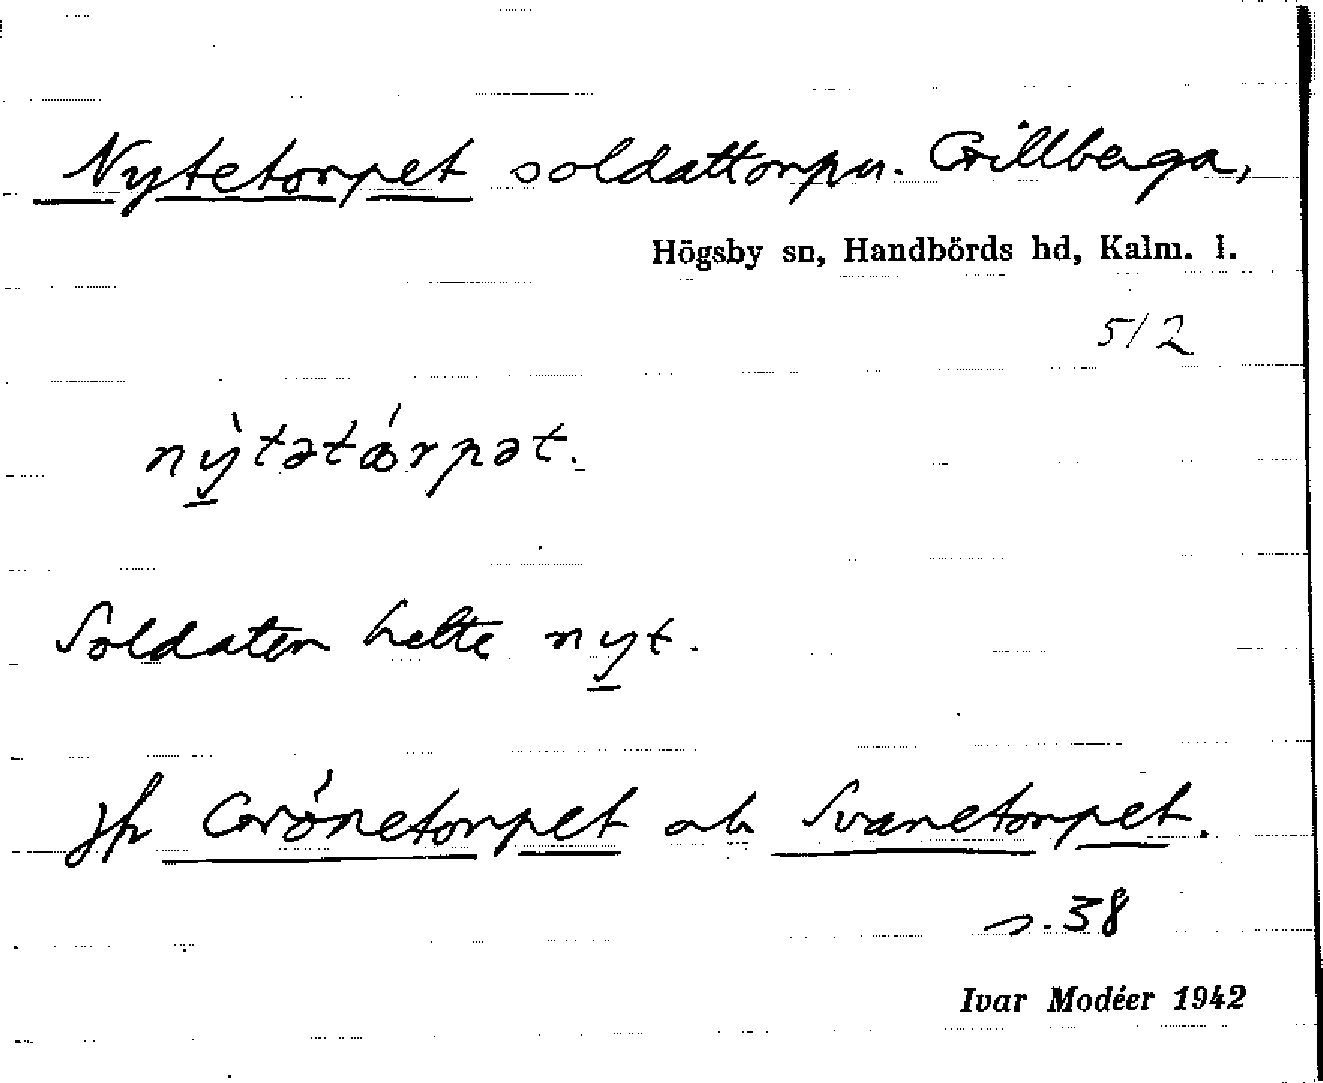 Nytetorpet soldattorpn. Gillberga,
Högsby sn, Handbörds hd, Kalm. l.
5/2
nỳ̠tətǿrpət.
Soldaten hette ny̠t.
jfr Grönetorpet och Svanetorpet.
s. 38
Ivar Modéer 1942